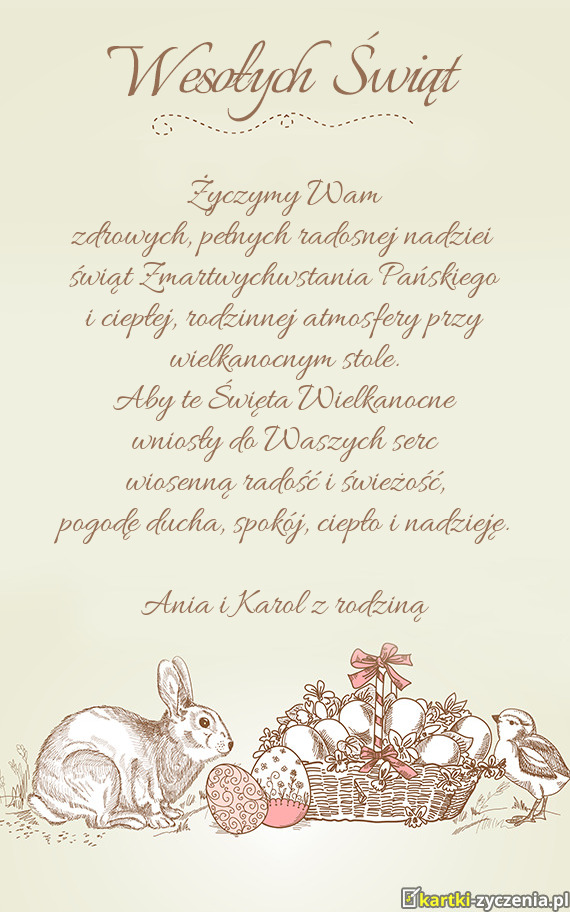 Wesołych Świąt
Życzymy Wam
zdrowych, pełnych radosnej nadziei
świąt Zmartwychwstania Pańskiego
i ciepłej, rodzinnej atmosfery przy
wielkanocnym stole.
Aby te Święta Wielkanocne
wniosły do Waszych serc
wiosenną radość i świeżość,
pogodę ducha, spokój, ciepło i nadzieję.
Ania i Karol z rodziną
kartki-zyczenia.pl